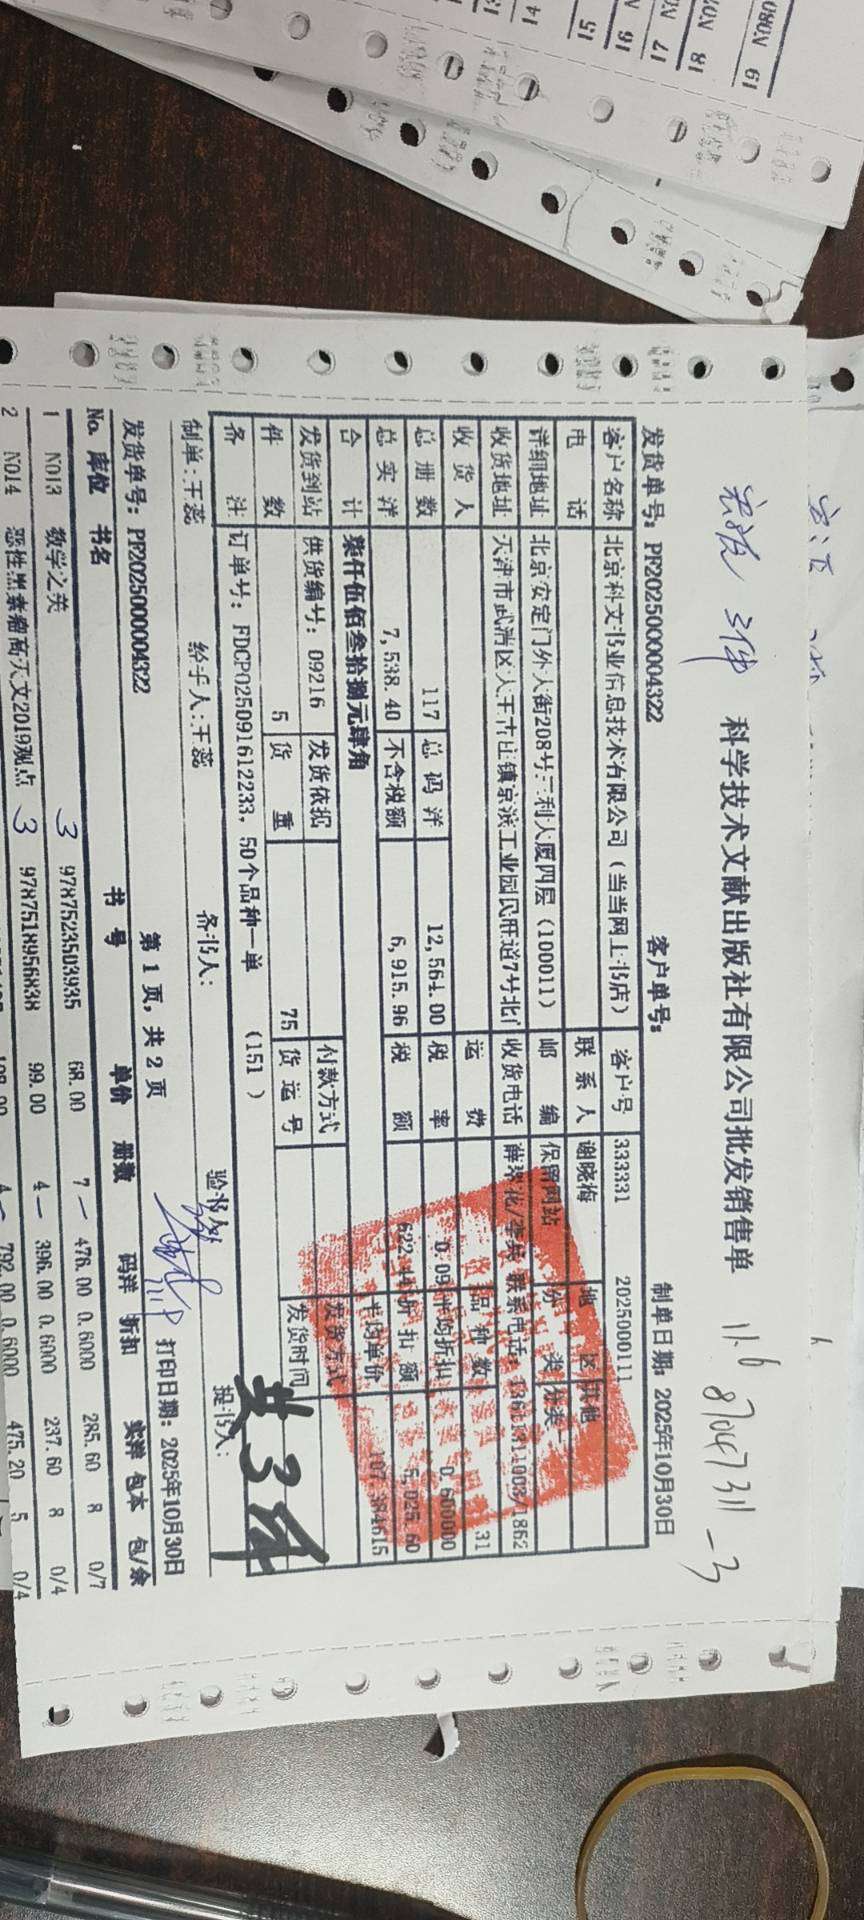 科学技术文献出版社有限公司批发销售单 11.6 87047311-3
发货单号：PF2025000004322 客户单号： 制单日期：2025年10月30日
客户名称 北京科文书业信息技术有限公司（当当网上书店） 客户号 333331 2025000111
电话 联系人 谢晓梅 地区 其他
详细地址 北京安定门外大街208号三利大厦四层（100011） 邮编 保留网站 分类
收货地址 天津市武清区大王古庄镇京滨工业园民旺道7号北门 收货电话 联系电话：
收货人 运费 品种数 31
总册数 117 总码洋 12,564.00 税率 0.09 平均折扣 0.600000
总实洋 7,538.40 不含税额 6,915.96 税额 622.44 折扣额 5,025.60
合计 柒仟伍佰叁拾捌元肆角 平均单价 107.384615
发货到站 供货编号：09216 发货依据 付款方式 发货方式
件数 5 货重 75 货运号 发货时间
备注 订单号：FDCP025091612233，50个品种一单 （151 ）
共3件
制单：王蕊 经手人：王蕊 备书人： 验书人： 提书人：
第 1 页，共 2 页
发货单号：PF2025000004322 打印日期：2025年10月30日
No. 库位 书名 书号 单价 册数 码洋 折扣 实洋 包本 包/余
1 N013 数学之美 3 9787523503935 68.00 7 476.00 0.6000 285.60 8 0/7
2 N014 恶性黑素瘤高天文2019观点 3 9787518956838 99.00 4 396.00 0.6000 237.60 8 0/4
198.00 4 792.00 0.6000 475.20 5 0/4
14
15
16
17
18
19